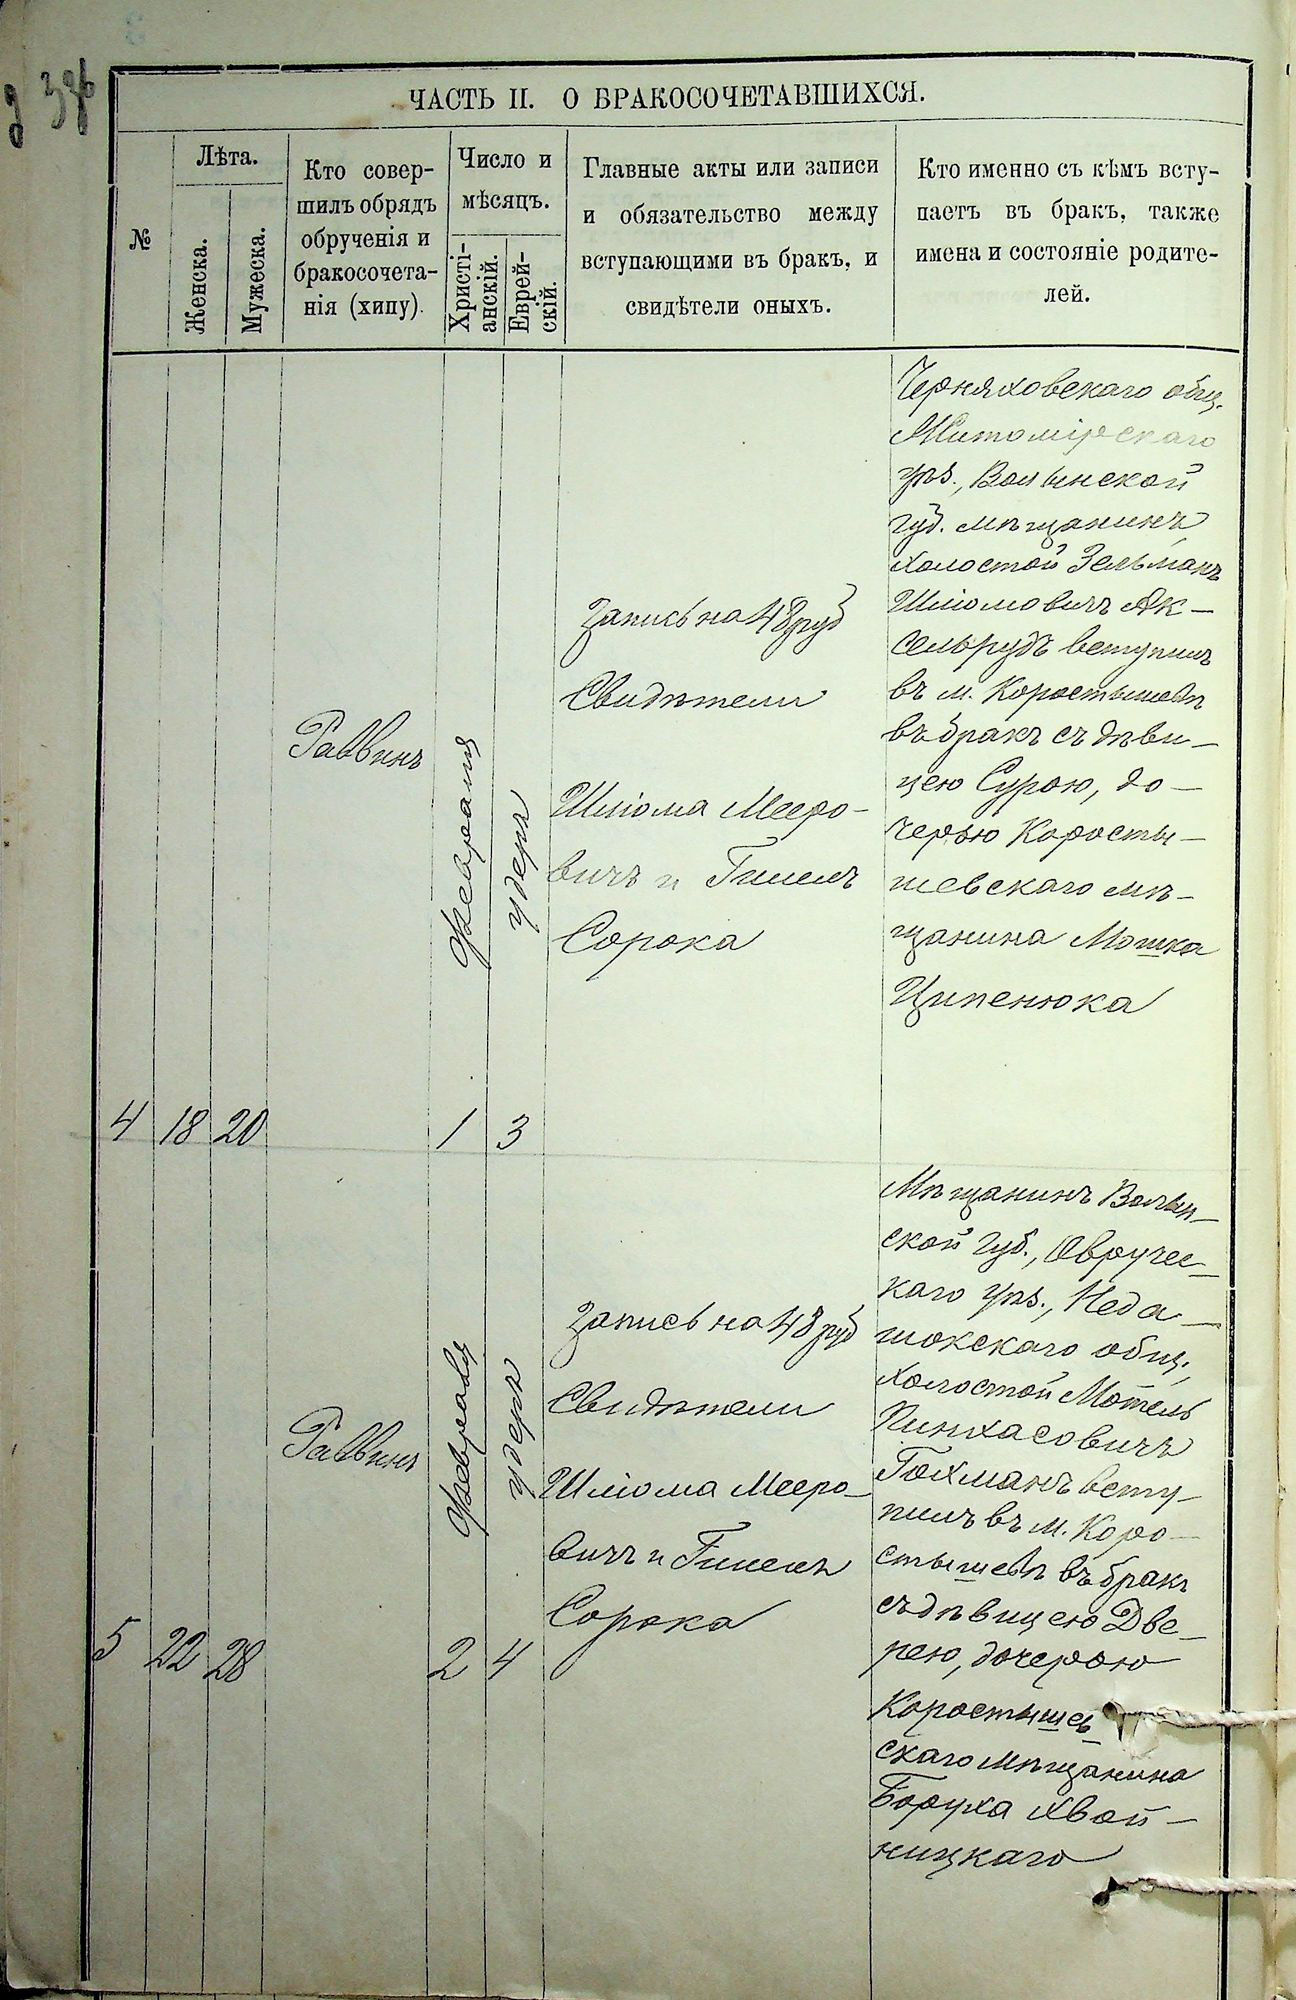 ЧАСТЬ II. О БРАКОСОЧЕТАВШИХСЯ.
№
Лѣта.
Женска.
Мужеска.
Кто совер-
шилъ обрядъ
обрученія и
бракосочета-
нія (хипу).
Число и
мѣсяцъ.
Христі-
анскій.
Еврей-
скій.
Главные акты или записи
и обязательство между
вступающими въ бракъ, и
свидѣтели оныхъ.
Кто именно съ кѣмъ всту-
паетъ въ бракъ, также
имена и состояніе родите-
лей.
4
18
20
Раввинъ
февраля
1
удеръ
3
Запись на 48 руб
Свидѣтели
Шліома Мееро-
вичъ и Гилель
Сорока
Черняховскаго общ.
Житомірскаго
уѣз., Волынской
губ. мѣщанинъ,
холостой Зельманъ
Шліомовичъ Ак-
сельрудъ вступилъ
въ м. Коростышевѣ
въ бракъ съ дѣви-
цею Сурою, до-
черью Коросты-
шевскаго мѣ-
щанина Мошка
Ципенюка
5
22
28
Раввинъ
февраля
2
удеръ
4
Запись на 48 руб
Свидѣтели
Шліома Мееро-
вичъ и Гилель
Сорока
Мѣщанинъ Волын-
ской губ., Овручс-
каго уѣз., Неда-
шокскаго общ.,
холостой Мотель
Пинхасовичъ
Гохманъ всту-
пилъ въ м. Коро-
стышевѣ въ бракъ
съ дѣвицею Две-
рею, дочерью
Коростышев
скаго мѣщанина
Боруха Хвой-
ницкаго